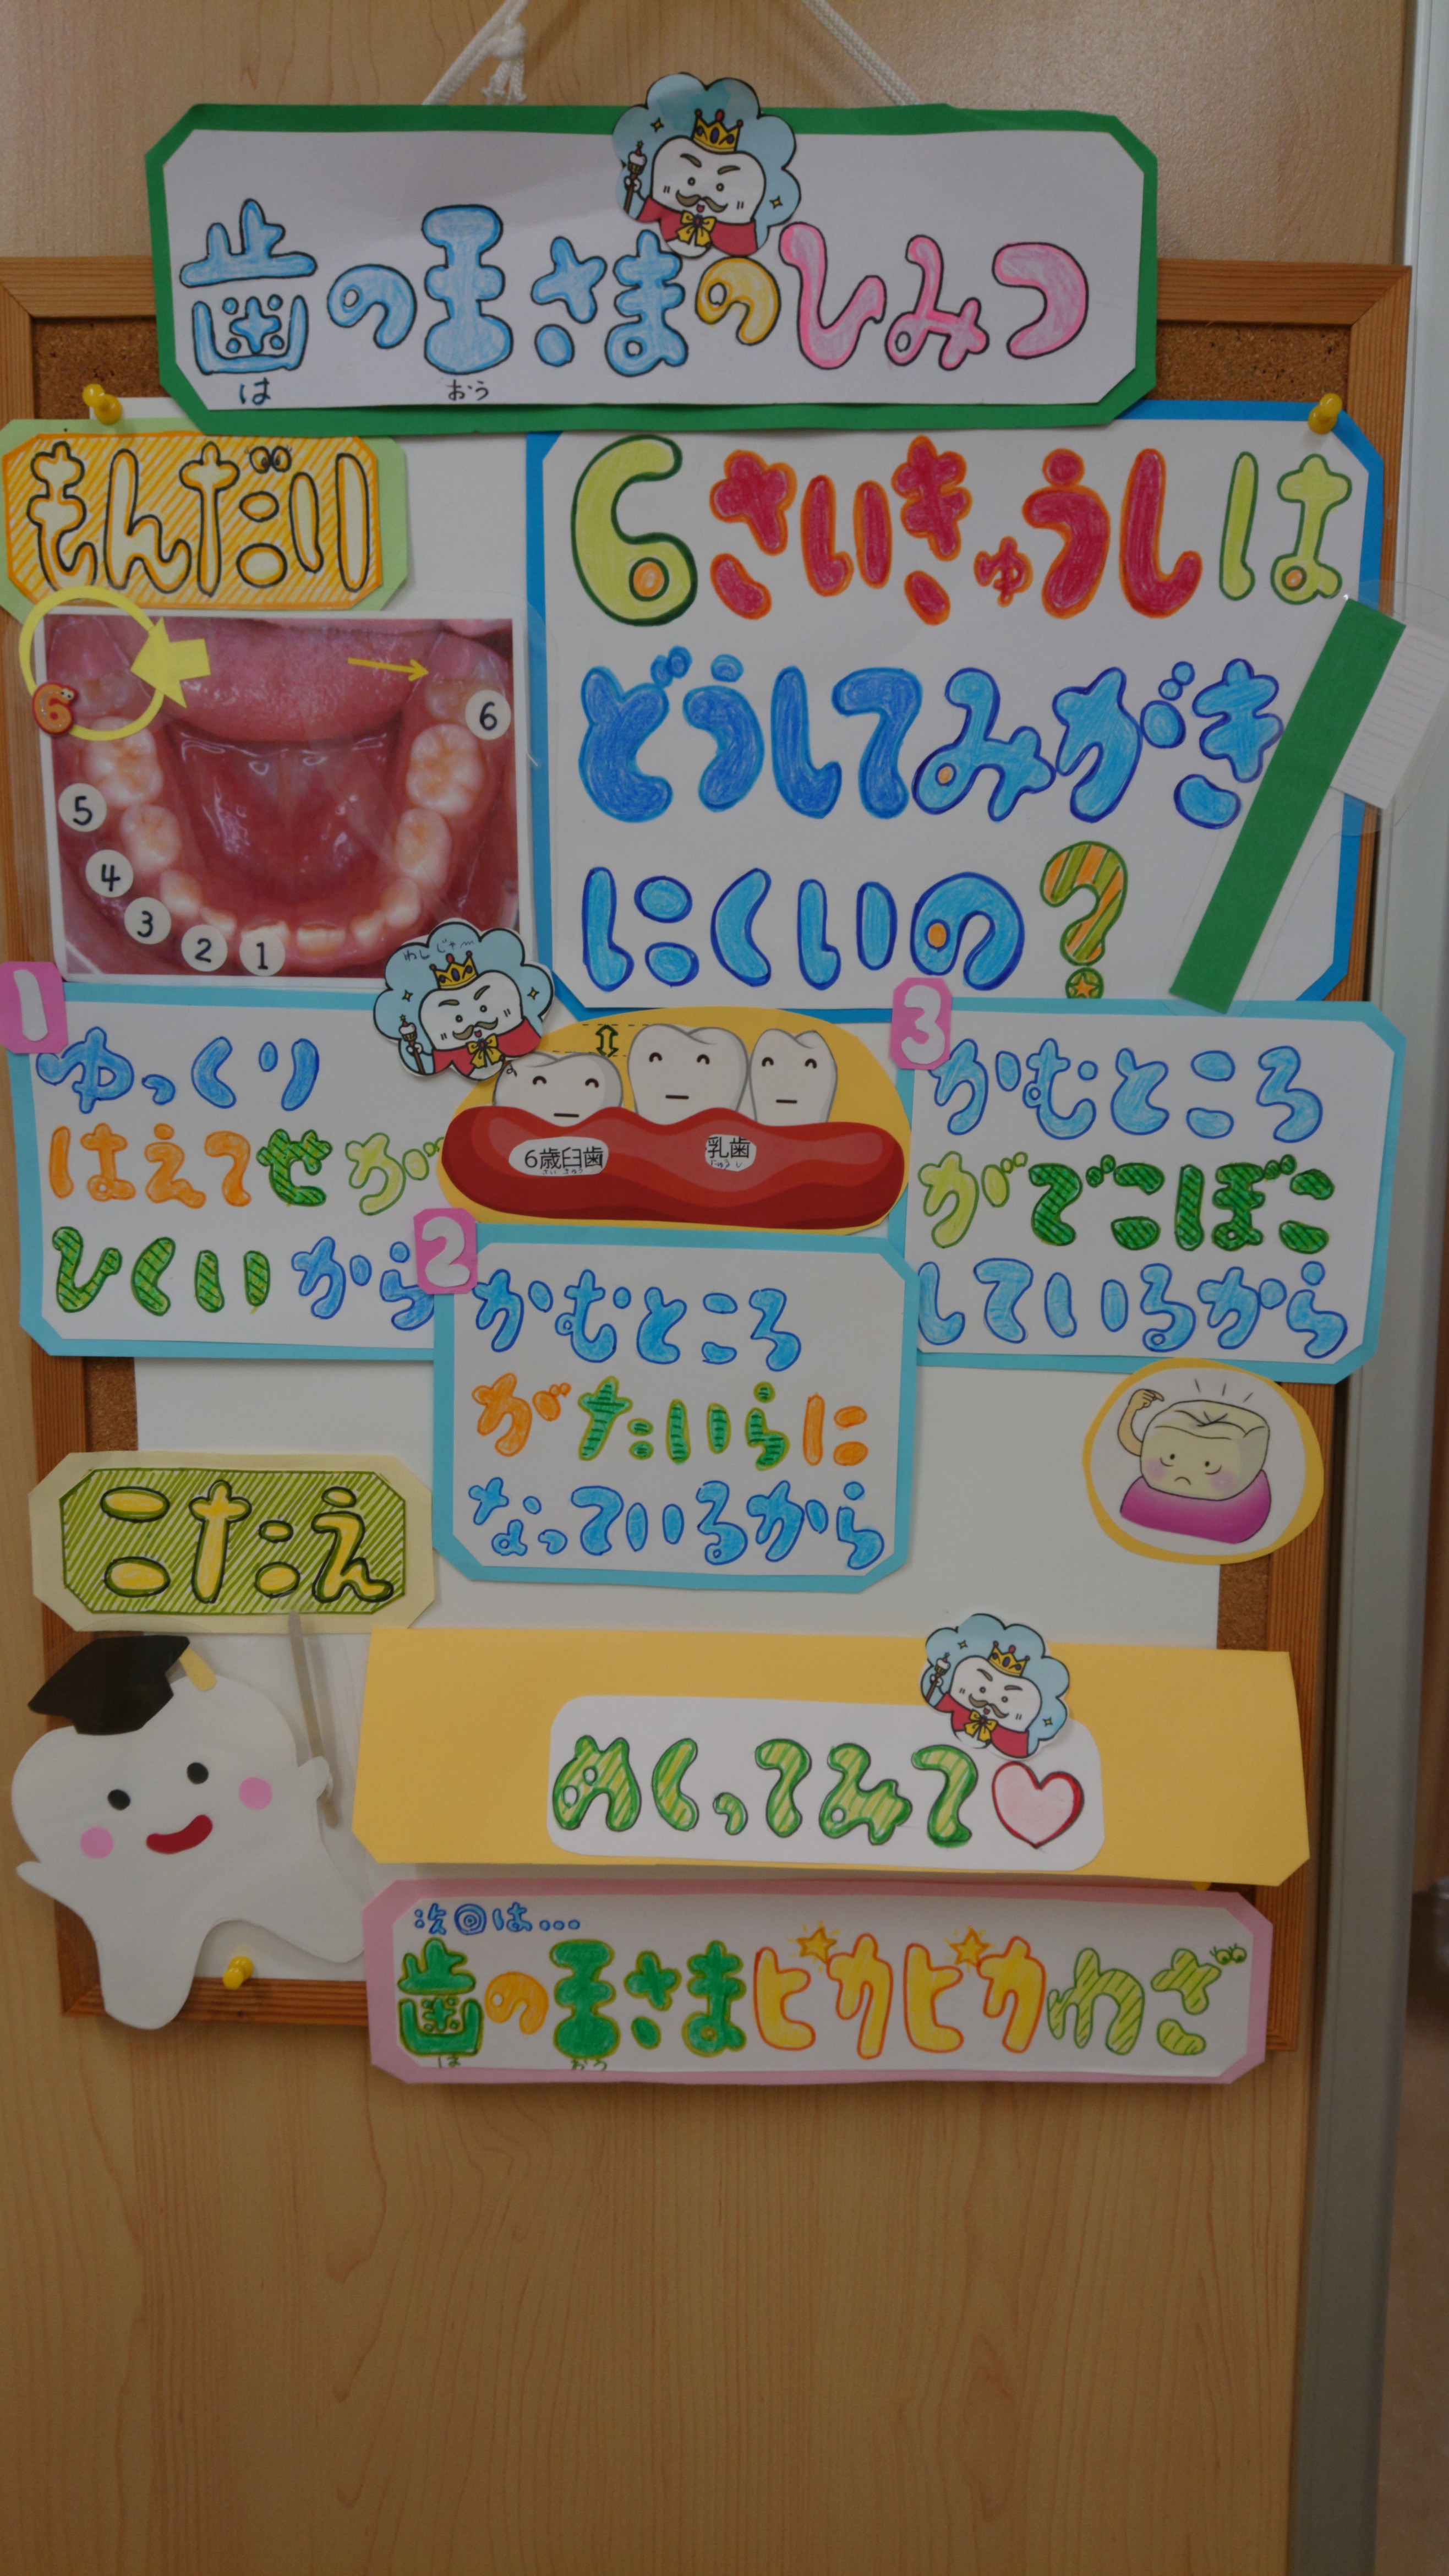 歯の王さまのひみつ
は おう
もんだい
6さいきゅうしは
どうしてみがき
にくいの?
6
6
5
4
3
2
1
わしじゃ〜
1
ゆっくり
はえてせが
ひくいから
6歳臼歯
さい きゅうし
乳歯
にゅうし
2
かむところ
がたいらに
なっているから
3
かむところ
がでこぼこ
しているから
こたえ
めくってみて♡
次回は...
歯の王さまピカピカわざ
は おう